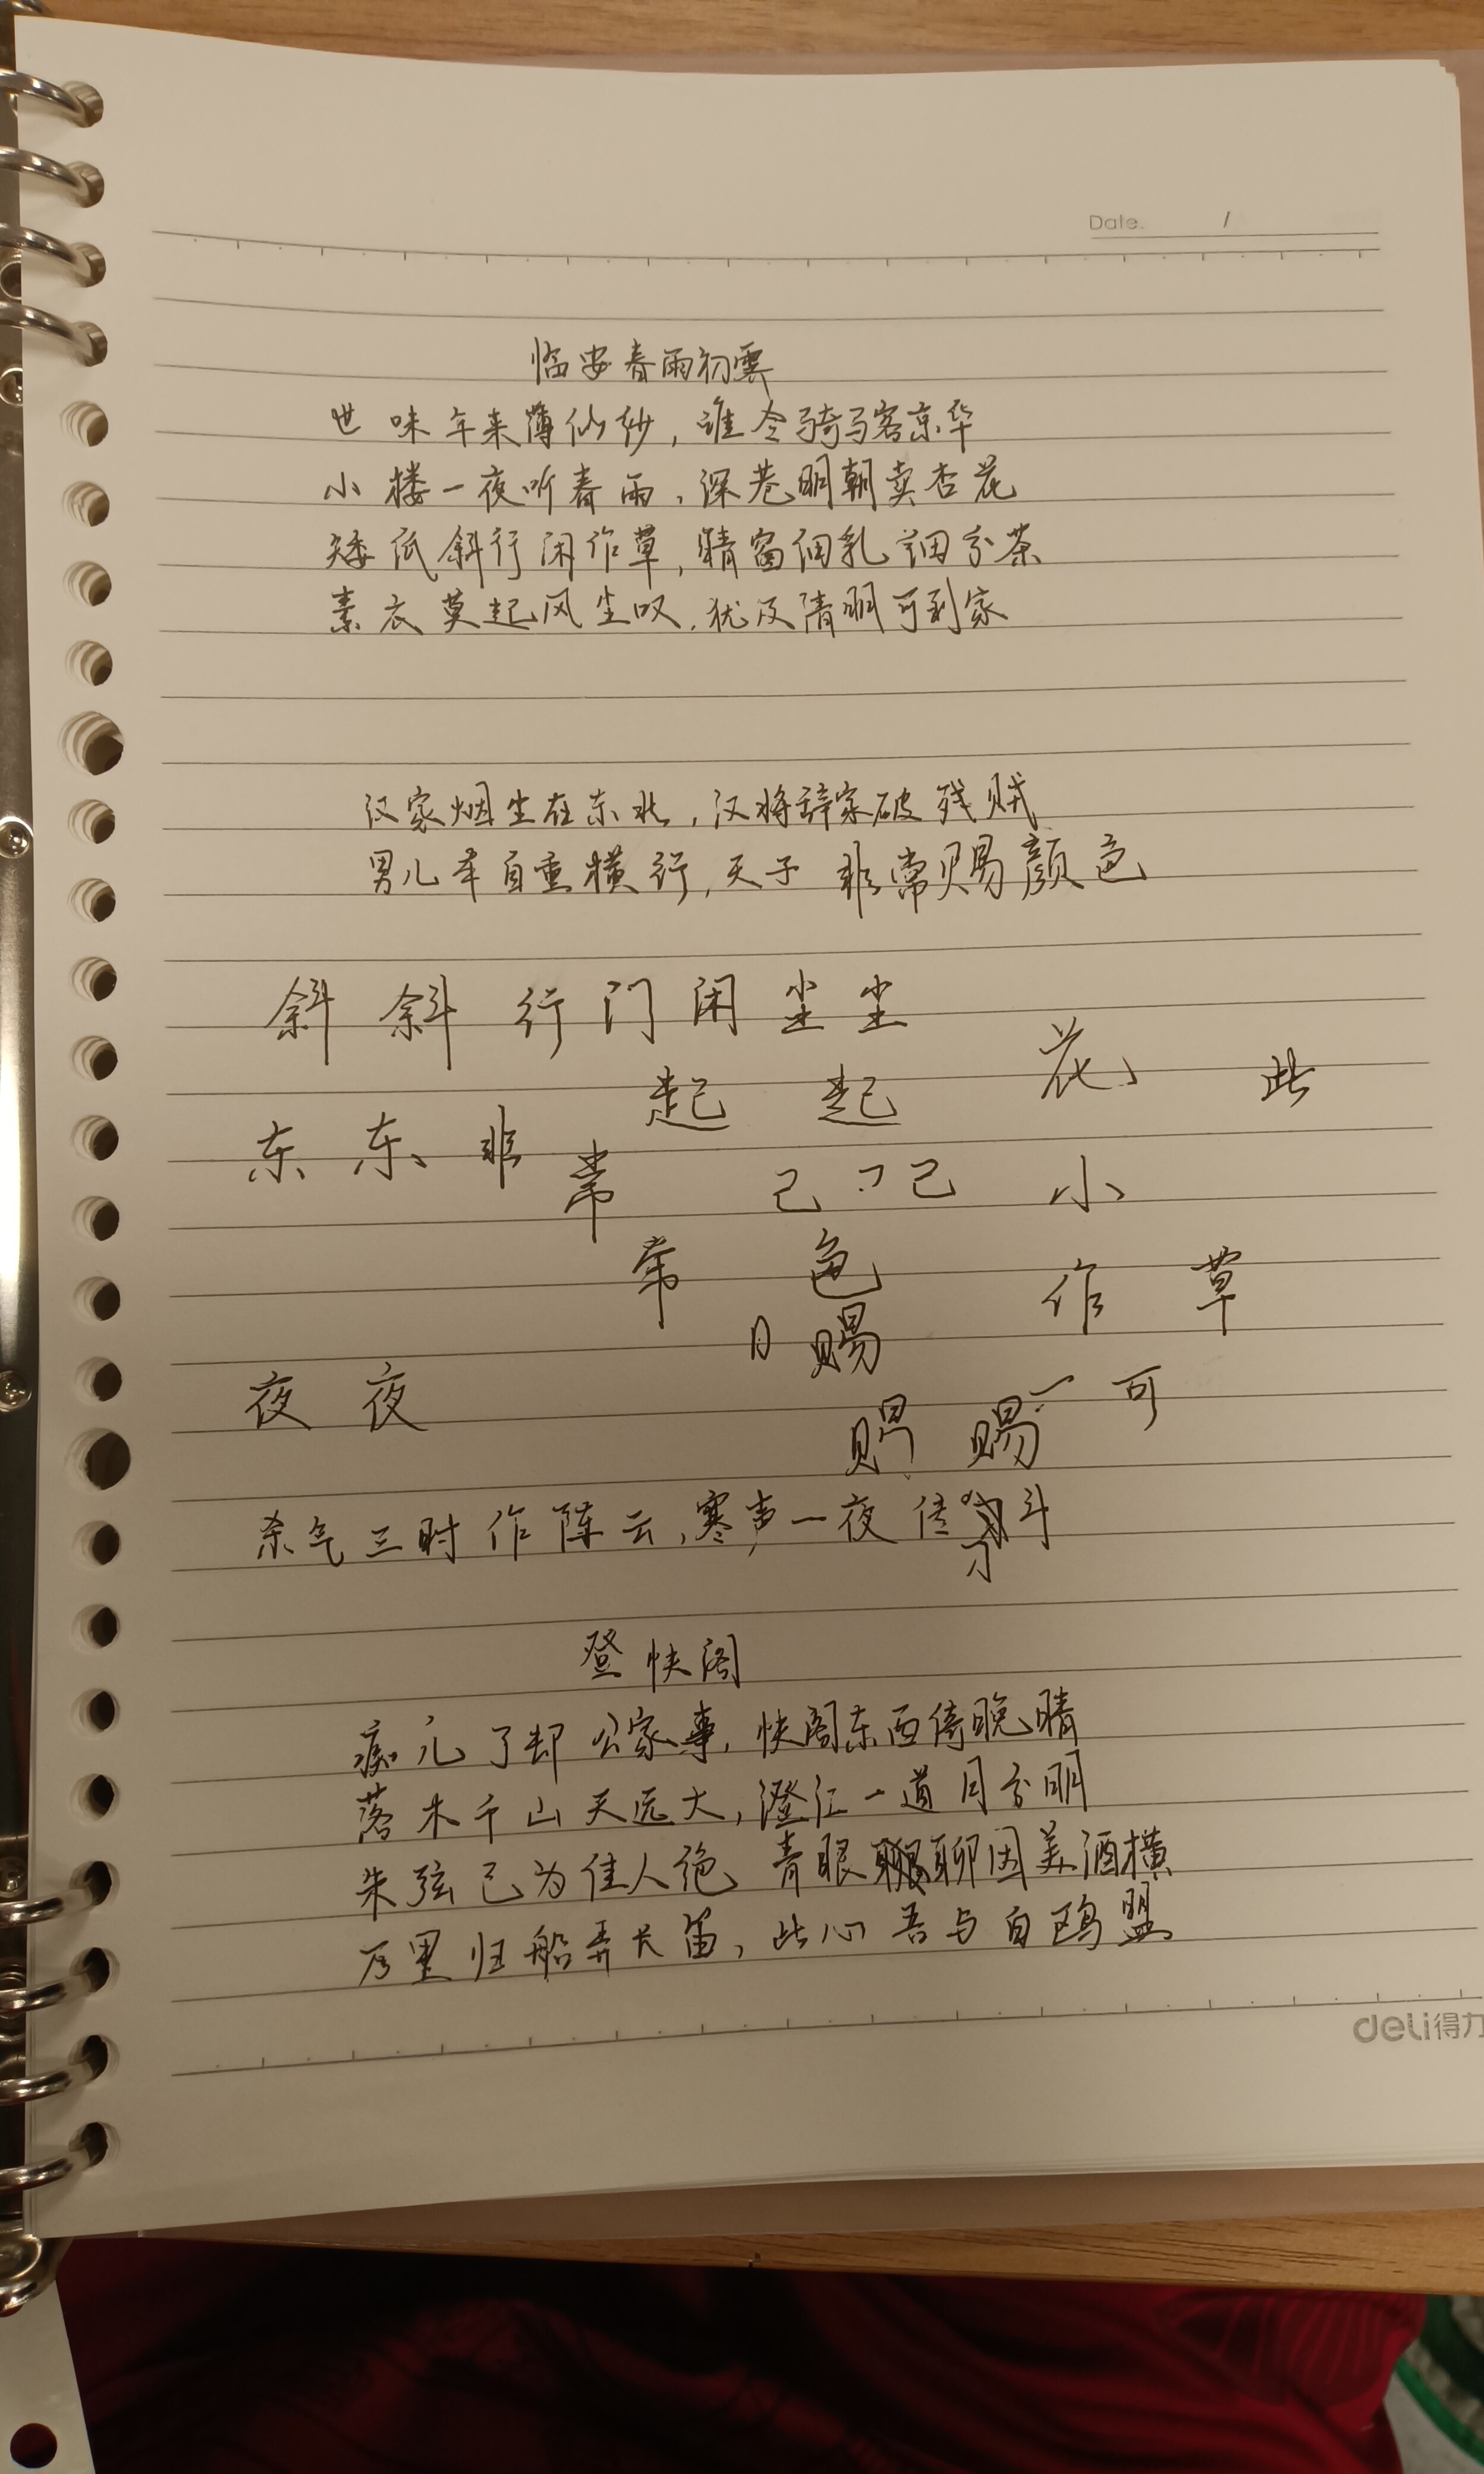 Date. /
临安春雨初霁
世味年来薄似纱,谁令骑马客京华
小楼一夜听春雨,深巷明朝卖杏花
矮纸斜行闲作草,晴窗细乳调分茶
素衣莫起风尘叹,犹及清明可到家
汉家烟尘在东北,汉将辞家破残贼
男儿本自重横行,天子非常赐颜色
斜斜行门闲尘尘
起起花此
东东非常己己小
常色作草
日赐
夜夜
赐一可
杀气三时作陈云,寒声一夜传刁斗
登快阁
痴儿了却公家事,快阁东西倚晚晴
落木千山天远大,澄江一道月分明
朱弦已为佳人绝,青眼聊因美酒横
万里归船弄长笛,此心吾与白鸥盟
deli得力